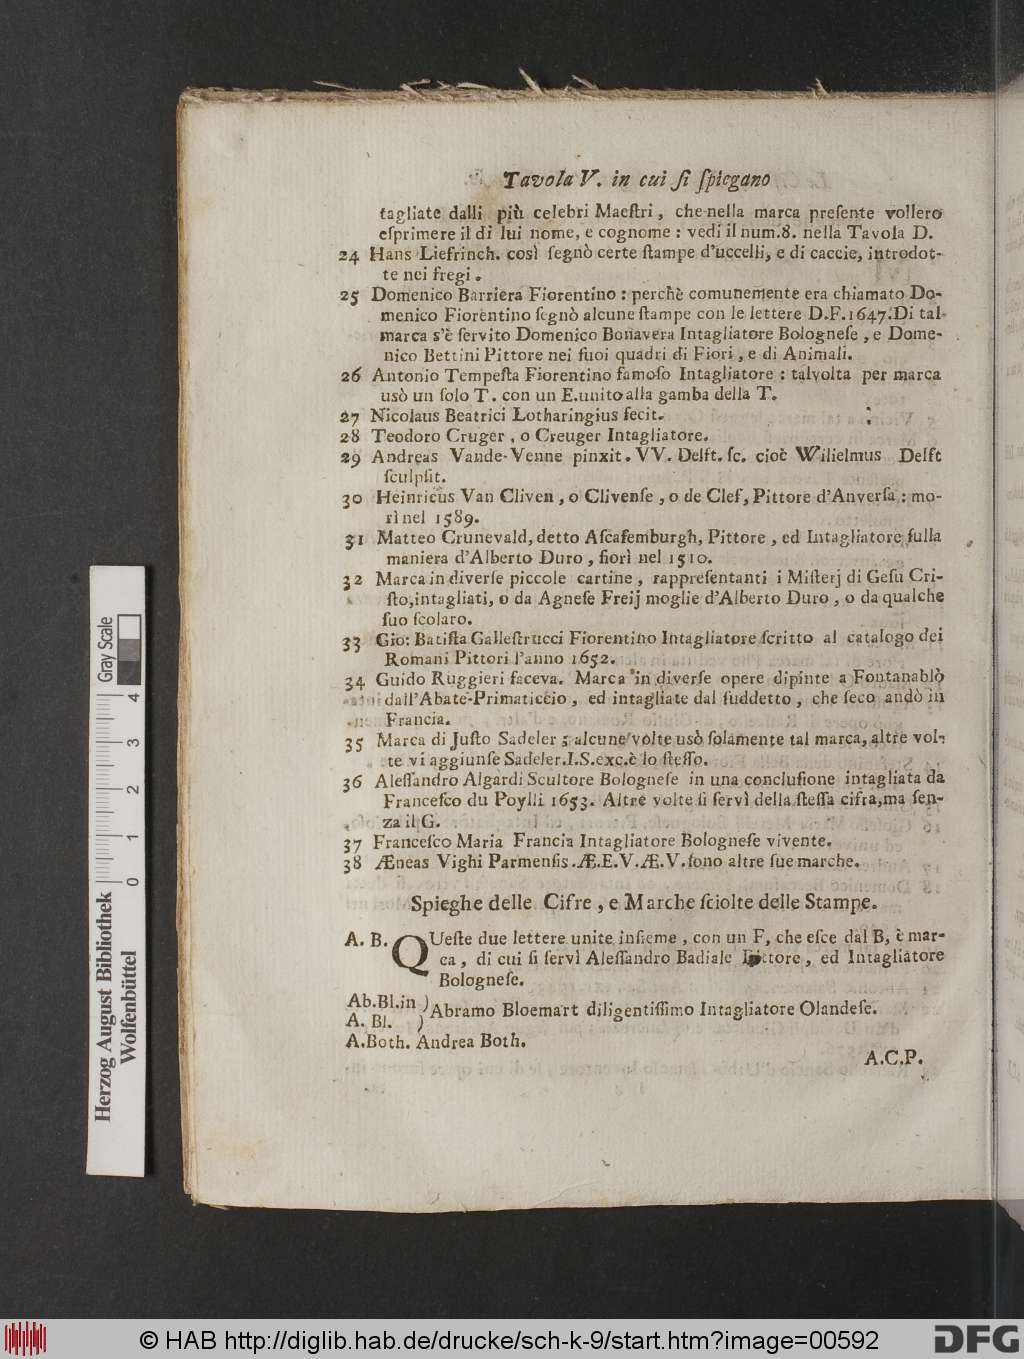 Tavola V. in cui ſi ſpiegano
tagliate dalli più celebri Maeſtri, che nella marca preſente vollero
eſprimere il di lui nome, e cognome: vedi il num.8. nella Tavola D.
24 Hans Liefrinch. così ſegnò certe ſtampe d'uccelli, e di caccie, introdot-
te nei fregi.
25 Domenico Barriera Fiorentino: perchè comunemente era chiamato Do-
menico Fiorentino ſegnò alcune ſtampe con le lettere D.F.1647. Di tal
marca s'è ſervito Domenico Bonavera Intagliatore Bologneſe, e Dome-
nico Bettini Pittore nei ſuoi quadri di Fiori, e di Animali.
26 Antonio Tempeſta Fiorentino famoſo Intagliatore: talvolta per marca
usò un ſolo T. con un E. unito alla gamba della T.
27 Nicolaus Beatrici Lotharingius fecit.
28 Teodoro Cruger, o Creuger Intagliatore.
29 Andreas Vande-Venne pinxit. VV. Delft. ſc. cioè Wilielmus Delft
ſculpſit.
30 Heinricus Van Cliven, o Clivenſe, o de Clef, Pittore d'Anverſa: mo-
rì nel 1589.
31 Matteo Crunevald, detto Aſcafemburgh, Pittore, ed Intagliatore ſulla
maniera d'Alberto Duro, fiorì nel 1510.
32 Marca in diverſe piccole cartine, rappreſentanti i Miſterj di Geſu Cri-
ſto, intagliati, o da Agneſe Freij moglie d'Alberto Duro, o da qualche
ſuo ſcolaro.
33 Gio: Batiſta Galleſtrucci Fiorentino Intagliatore ſcritto al catalogo dei
Romani Pittori l'anno 1652.
34 Guido Ruggieri faceva. Marca in diverſe opere dipinte a Fontanablò
dall'Abate-Primaticcio, ed intagliate dal ſuddetto, che ſeco andò in
Francia.
35 Marca di Juſto Sadeler; alcune volte usò ſolamente tal marca, altre vol-
te vi aggiunſe Sadeler.I.S.exc.è lo ſteſſo.
36 Aleſſandro Algardi Scultore Bologneſe in una concluſione intagliata da
Franceſco du Poylli 1653. Altre volte ſi ſervì della ſteſſa cifra, ma ſen-
za il G.
37 Franceſco Maria Francia Intagliatore Bologneſe vivente.
38 Æneas Vighi Parmenſis. Æ.E.V.Æ.V. ſono altre ſue marche.
Spieghe delle Cifre, e Marche ſciolte delle Stampe.
A. B. QUeſte due lettere unite inſieme, con un F, che eſce dal B, è mar-
ca, di cui ſi ſervì Aleſſandro Badiale Pittore, ed Intagliatore
Bologneſe.
Ab.Bl.in )
A. Bl. ) Abramo Bloemart diligentiſſimo Intagliatore Olandeſe.
A.Both. Andrea Both.
A.C.P.
Herzog August Bibliothek
Wolfenbüttel
Gray Scale
0 1 2 3 4
© HAB http://diglib.hab.de/drucke/sch-k-9/start.htm?image=00592
DFG